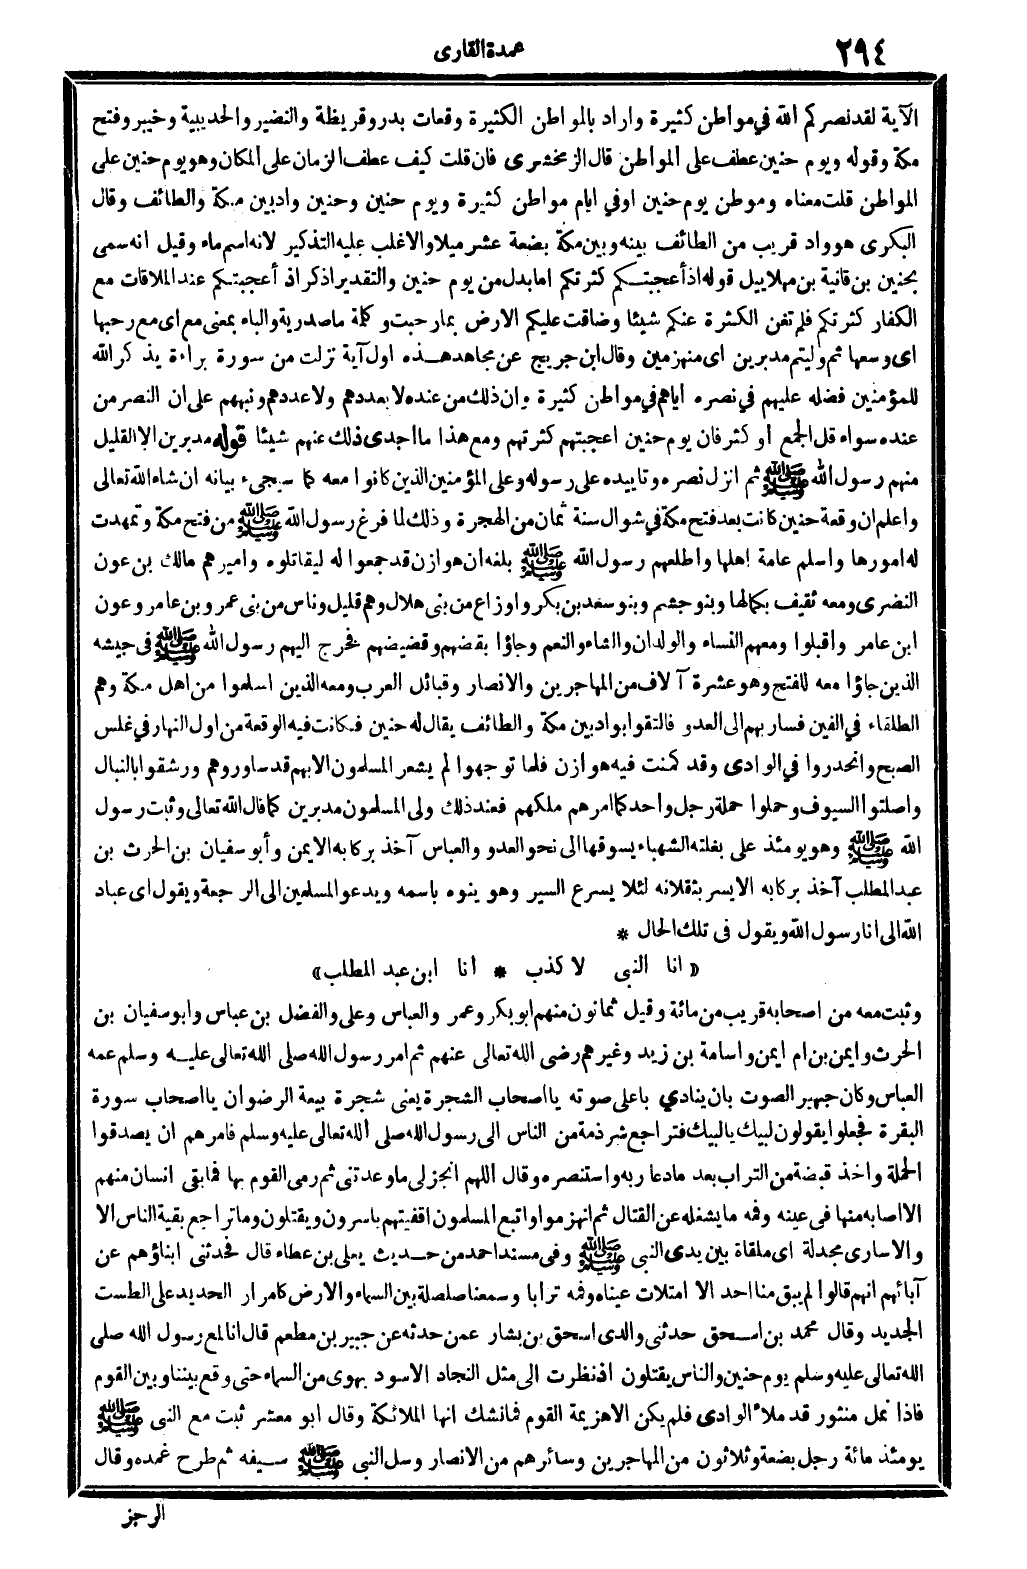 ٢٩٤
عمدة القارى
الآية لقد نصركم الله في مواطن كثيرة واراد بالمواطن الكثيرة وقعات بدر وقريظة والنضير والحديبية وخيبر وفتح
مكة وقوله ويوم حنين عطف على المواطن قال الزمخشرى فان قلت كيف عطف الزمان على المكان وهو يوم حنين على
المواطن قلت معناه وموطن يوم حنين اوفي ايام مواطن كثيرة ويوم حنين وحنين واد بين مكة والطائف وقال
البكرى هو واد قريب من الطائف بينه وبين مكة بضعة عشر ميلا والاغلب عليه التذكير لانه اسم ماء وقيل انه سمى
بحنين بن قانية بن مهلاييل قوله اذ أعجبتكم كثرتكم اما بدل من يوم حنين والتقدير اذكر اذ أعجبتكم عند الملاقات مع
الكفار كثرتكم فلم تغن الكثرة عنكم شيئا وضاقت عليكم الارض بما رحبت وكلمة ما مصدرية والباء بمعنى مع اى مع رحبها
اى وسعها ثم وليتم مدبرين اى منهزمين وقال ابن جريج عن مجاهد هذه اول آية نزلت من سورة براءة يذكر الله
للمؤمنين فضله عليهم في نصره اياهم في مواطن كثيرة وان ذلك من عنده لا بعددهم ولا عددهم ونبههم على ان النصر من
عنده سواء قل الجمع او كثر فان يوم حنين اعجبتهم كثرتهم ومع هذا ما اجدى ذلك عنهم شيئا قوله مدبرين الا القليل
منهم رسول الله ﷺ ثم انزل نصره وتاييده على رسوله وعلى المؤمنين الذين كانوا معه كما سيجىء بيانه ان شاء الله تعالى
واعلم ان وقعة حنين كانت بعد فتح مكة في شوال سنة ثمان من الهجرة وذلك لما فرغ رسول الله ﷺ من فتح مكة وتمهدت
له امورها واسلم عامة اهلها واطلعهم رسول الله ﷺ بلغه ان هوازن قد جمعوا له ليقاتلوه واميرهم مالك بن عون
النضرى ومعه ثقيف بكمالها وبنو جشم وبنو سعد بن بكر واوزاع من بنى هلال وهم قليل وناس من بنى عمرو بن عامر وعون
ابن عامر واقبلوا ومعهم النساء والولدان والشاء والنعم وجاؤا بقضهم وقضيضهم فخرج اليهم رسول الله ﷺ فى جيشه
الذين جاؤا معه للفتح وهو عشرة آلاف من المهاجرين والانصار وقبائل العرب ومعه الذين اسلموا من اهل مكة وهم
الطلقاء في الفين فسار بهم الى العدو فالتقوا بواد بين مكة والطائف يقال له حنين فكانت فيه الوقعة من اول النهار في غلس
الصبح وانحدروا في الوادى وقد كمنت فيه هوازن فلما توجهوا لم يشعر المسلمون الا بهم قد ساوروهم ورشقوا بالنبال
واصلتوا السيوف وحملوا حملة رجل واحد كما امرهم ملكهم فعند ذلك ولى المسلمون مدبرين كما قال الله تعالى وثبت رسول
الله ﷺ وهو يومئذ على بغلته الشهباء يسوقها الى نحو العدو والعباس آخذ بركابه الايمن وأبو سفيان بن الحرث بن
عبد المطلب آخذ بركابه الايسر يثقلانه لئلا يسرع السير وهو ينوه باسمه ويدعو المسلمين الى الرجعة ويقول اى عباد
الله الى انا رسول الله ويقول فى تلك الحال *
« انا النبى لا كذب * انا ابن عبد المطلب »
وثبت معه من اصحابه قريب من مائة وقيل ثمانون منهم ابو بكر وعمر والعباس وعلى والفضل بن عباس وابو سفيان بن
الحرث وايمن بن ام ايمن واسامة بن زيد وغيرهم رضى الله تعالى عنهم ثم امر رسول الله صلى الله تعالى عليه وسلم عمه
العباس وكان جهير الصوت بان ينادي باعلى صوته يا اصحاب الشجرة يعنى شجرة بيعة الرضوان يا اصحاب سورة
البقرة فجعلوا يقولون لبيك يالبيك فتراجع شرذمة من الناس الى رسول الله صلى الله تعالى عليه وسلم فامرهم ان يصدقوا
الحملة واخذ قبضة من التراب بعد ما دعا ربه واستنصره وقال اللهم انجز لى ما وعدتنى ثم رمى القوم بها فما بقى انسان منهم
الا اصابه منها فى عينه وفمه ما يشغله عن القتال ثم انهزموا واتبع المسلمون اقفيتهم ياسرون ويقتلون وما تراجع بقية الناس الا
والاسارى مجدلة اى ملقاة بين يدى النبى ﷺ وفى مسند احمد من حديث يعلى بن عطاء قال فحدثنى ابناؤهم عن
آبائهم انهم قالوا لم يبق منا احد الا امتلات عيناه وفمه ترابا وسمعنا صلصلة بين السماء والارض كامرار الحديد على الطست
الجديد وقال محمد بن اسحق حدثنى والدى اسحق بن بشار عمن حدثه عن جبير بن مطعم قال انا لمع رسول الله صلى
الله تعالى عليه وسلم يوم حنين والناس يقتلون اذ نظرت الى مثل النجاد الاسود يهوى من السماء حتى وقع بيننا وبين القوم
فاذا نمل منثور قد ملأ الوادى فلم يكن الا هزيمة القوم فما نشك انها الملائكة وقال ابو معشر ثبت مع النبى ﷺ
يومئذ مائة رجل بضعة وثلاثون من المهاجرين وسائرهم من الانصار وسل النبى ﷺ سيفه ثم طرح غمده وقال
الرجز